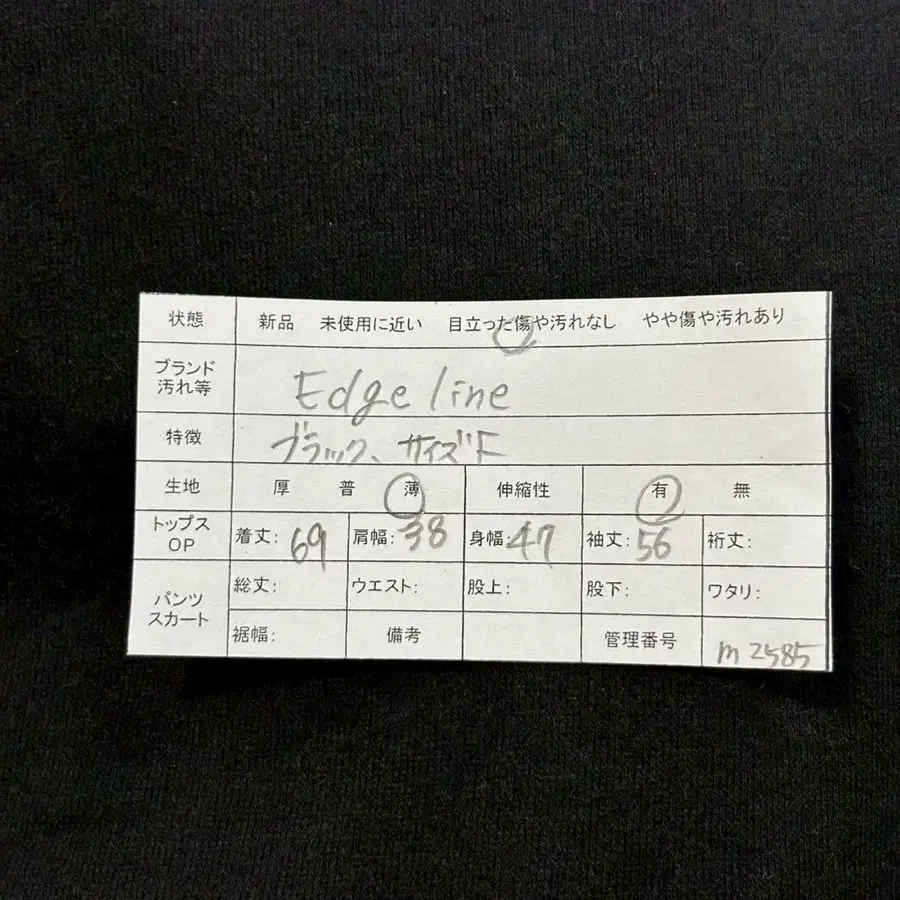 状態 新品 未使用に近い 目立った傷や汚れなし やや傷や汚れあり
ブランド
汚れ等 Edge line
特徴 ブラック、サイズF
生地 厚 普 薄 伸縮性 有 無
トップス
OP 着丈: 69 肩幅: 38 身幅: 47 袖丈: 56 裄丈:
パンツ
スカート 総丈: ウエスト: 股上: 股下: ワタリ:
裾幅: 備考 管理番号 m2585